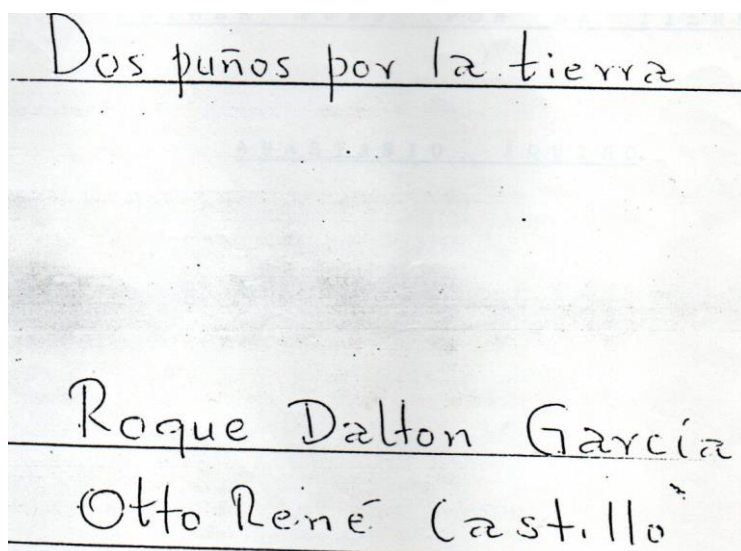 Dos puños por la tierra
Roque Dalton García
Otto René Castillo